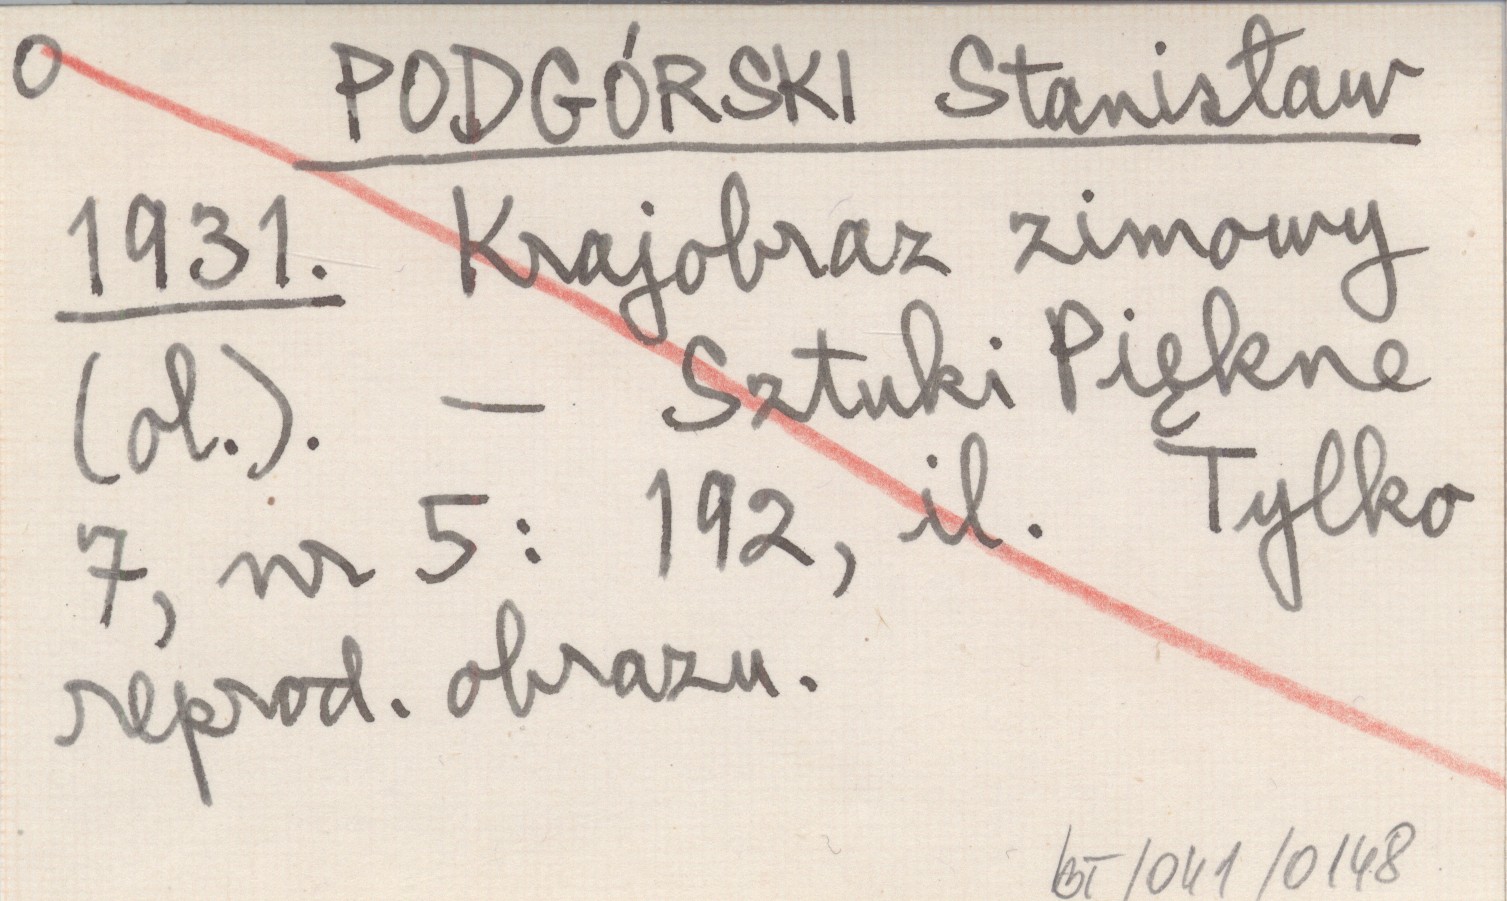 O PODGÓRSKI Stanisław
1931. Krajobraz zimowy
(ol.). — Sztuki Piękne
7, nr 5: 192, il. Tylko
reprod. obrazu.
BT/041/0148